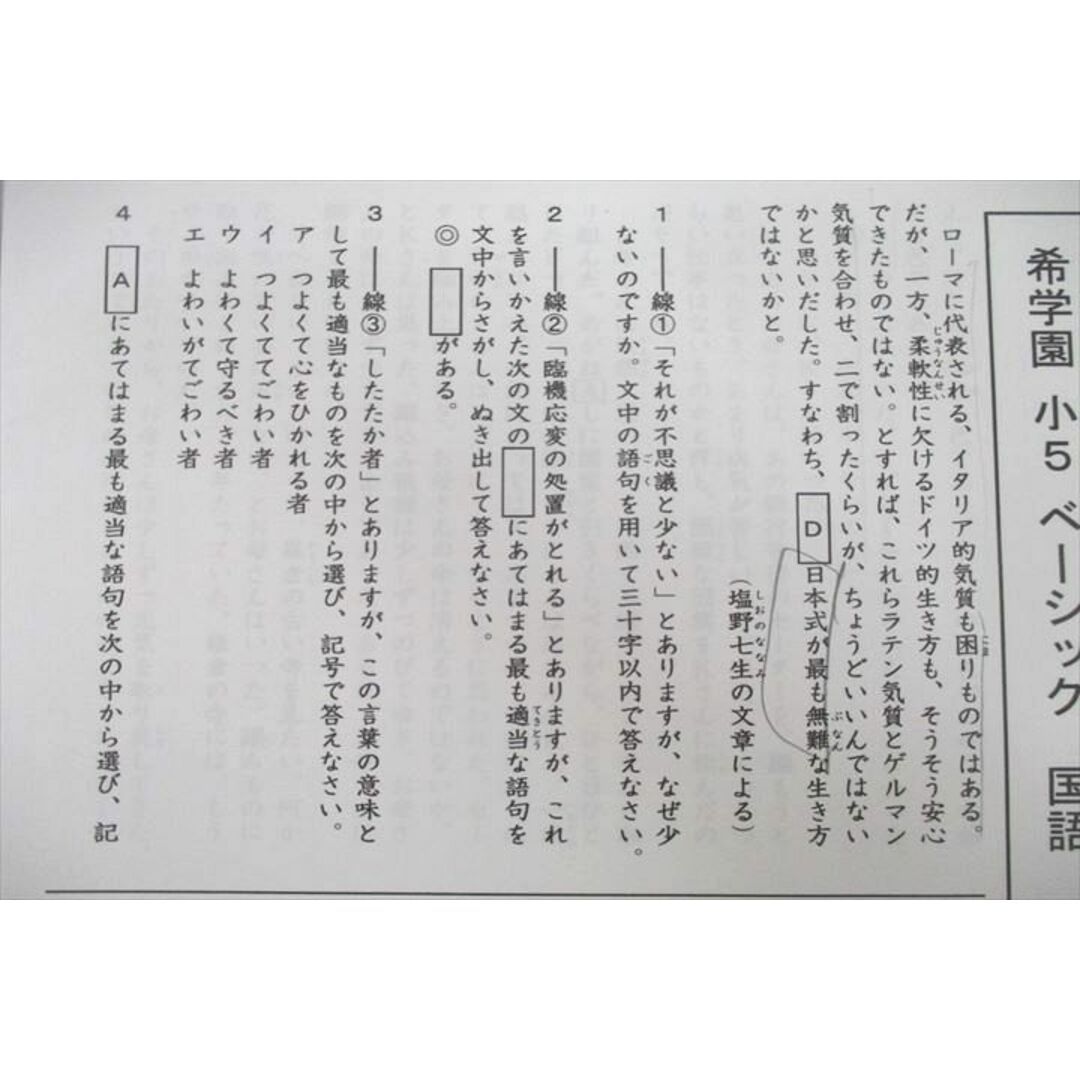 希学園 小5 ベーシック 国語
ローマに代表される、イタリア的気質も困りものではある。
だが、一方、柔軟性に欠けるドイツ的生き方も、そうそう安心
じゅうなんせい
できたものではない。とすれば、これらラテン気質とゲルマン
気質を合わせ、二で割ったくらいが、ちょうどいいんではない
かと思いだした。すなわち、D日本式が最も無難な生き方
ぶなん
ではないかと。
(塩野七生の文章による)
しおのななみ
1 ――線①「それが不思議と少ない」とありますが、なぜ少
ないのですか。文中の語句を用いて三十字以内で答えなさい。
ごく
2 ――線②「臨機応変の処置がとれる」とありますが、これ
を言いかえた次の文の□にあてはまる最も適当な語句を
てきとう
文中からさがし、ぬき出して答えなさい。
◎ □がある。
3 ――線③「したたか者」とありますが、この言葉の意味と
して最も適当なものを次の中から選び、記号で答えなさい。
ア つよくて心をひかれる者
イ つよくててごわい者
ウ よわくて守るべき者
エ よわいがてごわい者
4 Aにあてはまる最も適当な語句を次の中から選び、記